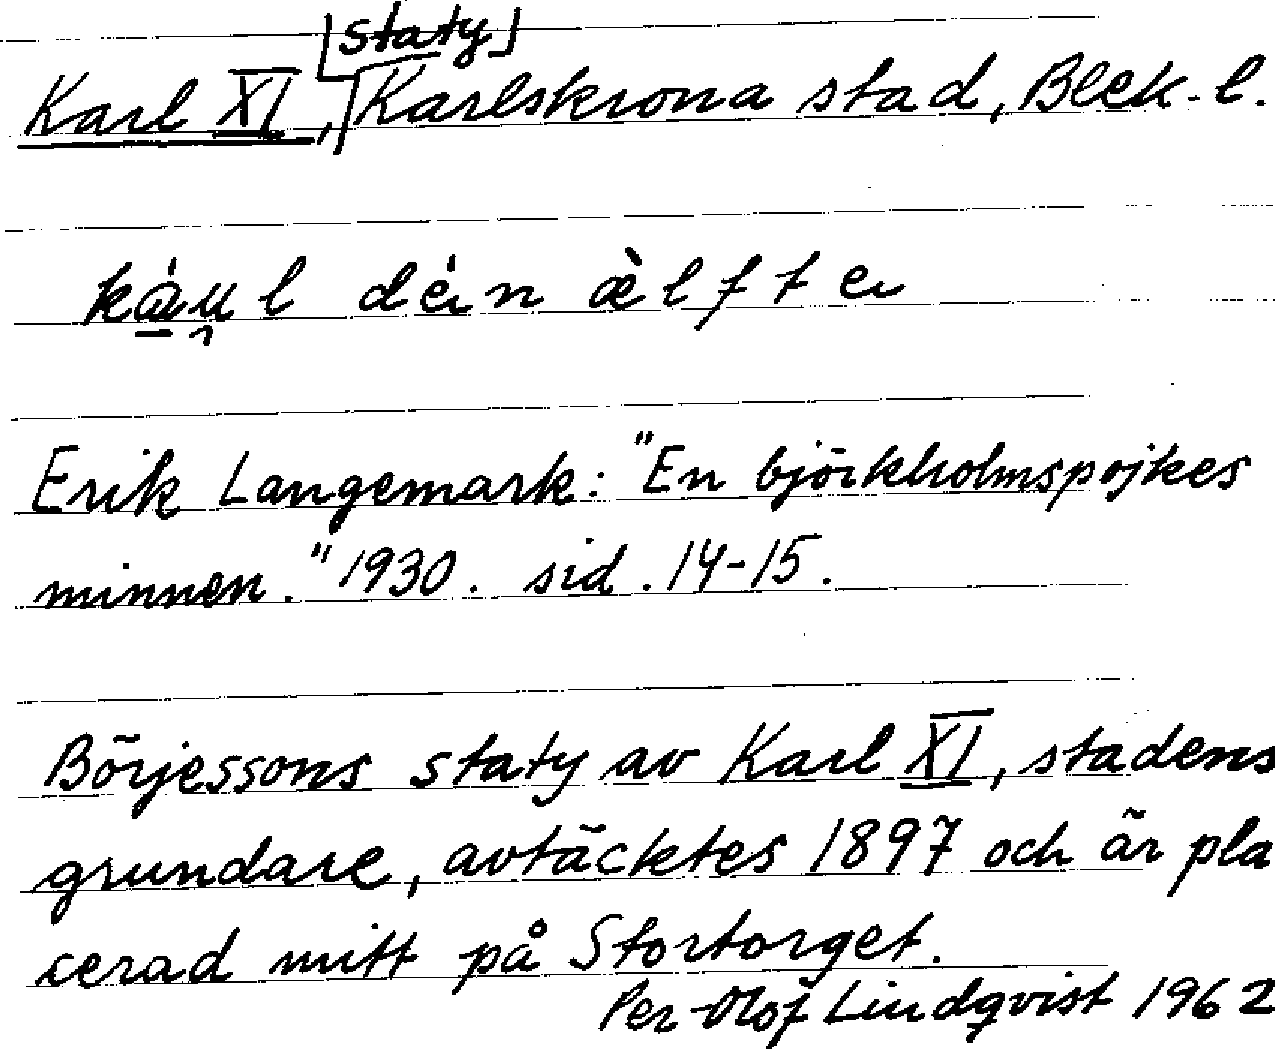 [staty]
Karl XI, Karlskrona stad, Blek. l.
Erik Langemark: "En björkholmspojkes
minnen." 1930. sid. 14-15.
Börjessons staty av Karl XI, stadens
grundare, avtäcktes 1897 och är pla
cerad mitt på Stortorget.
Per-Olof Lindqvist 1962